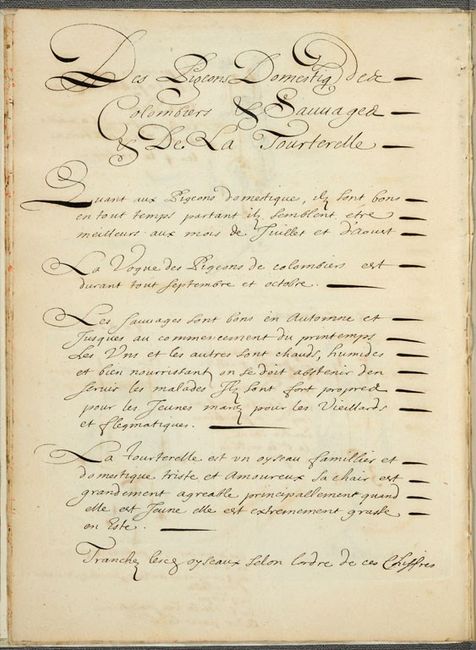 Des Pigeons Domestiq de
Colombiers & Sauvages
& De La Tourterelle
Quant aux Pigeons domestique, ilz sont bons
en tout temps partant ilz semblent etre
meilleurs aux mois de Juillet et d'Aoust
La Vogue des Pigeons de colombiers est
durant tout septembre et octobre.
Les sauvages sont bons en Automne et
Jusques au commencement du printemps
Les Uns et les autres sont chauds, humides
et bien nourrissant on se doit abstenir den
servir les malades Ilz sont fort propres
pour les Jeunes mariez pour les Vieillards
et flegmatiques.
La tourterelle est un oyseau famillier et
domestique triste et Amoureux sa chair est
grandement agreable principallement quand
elle est Jeune elle est extremement grasse
en Esté.
Tranchez oyseaux selon lordre de ces Chiffres